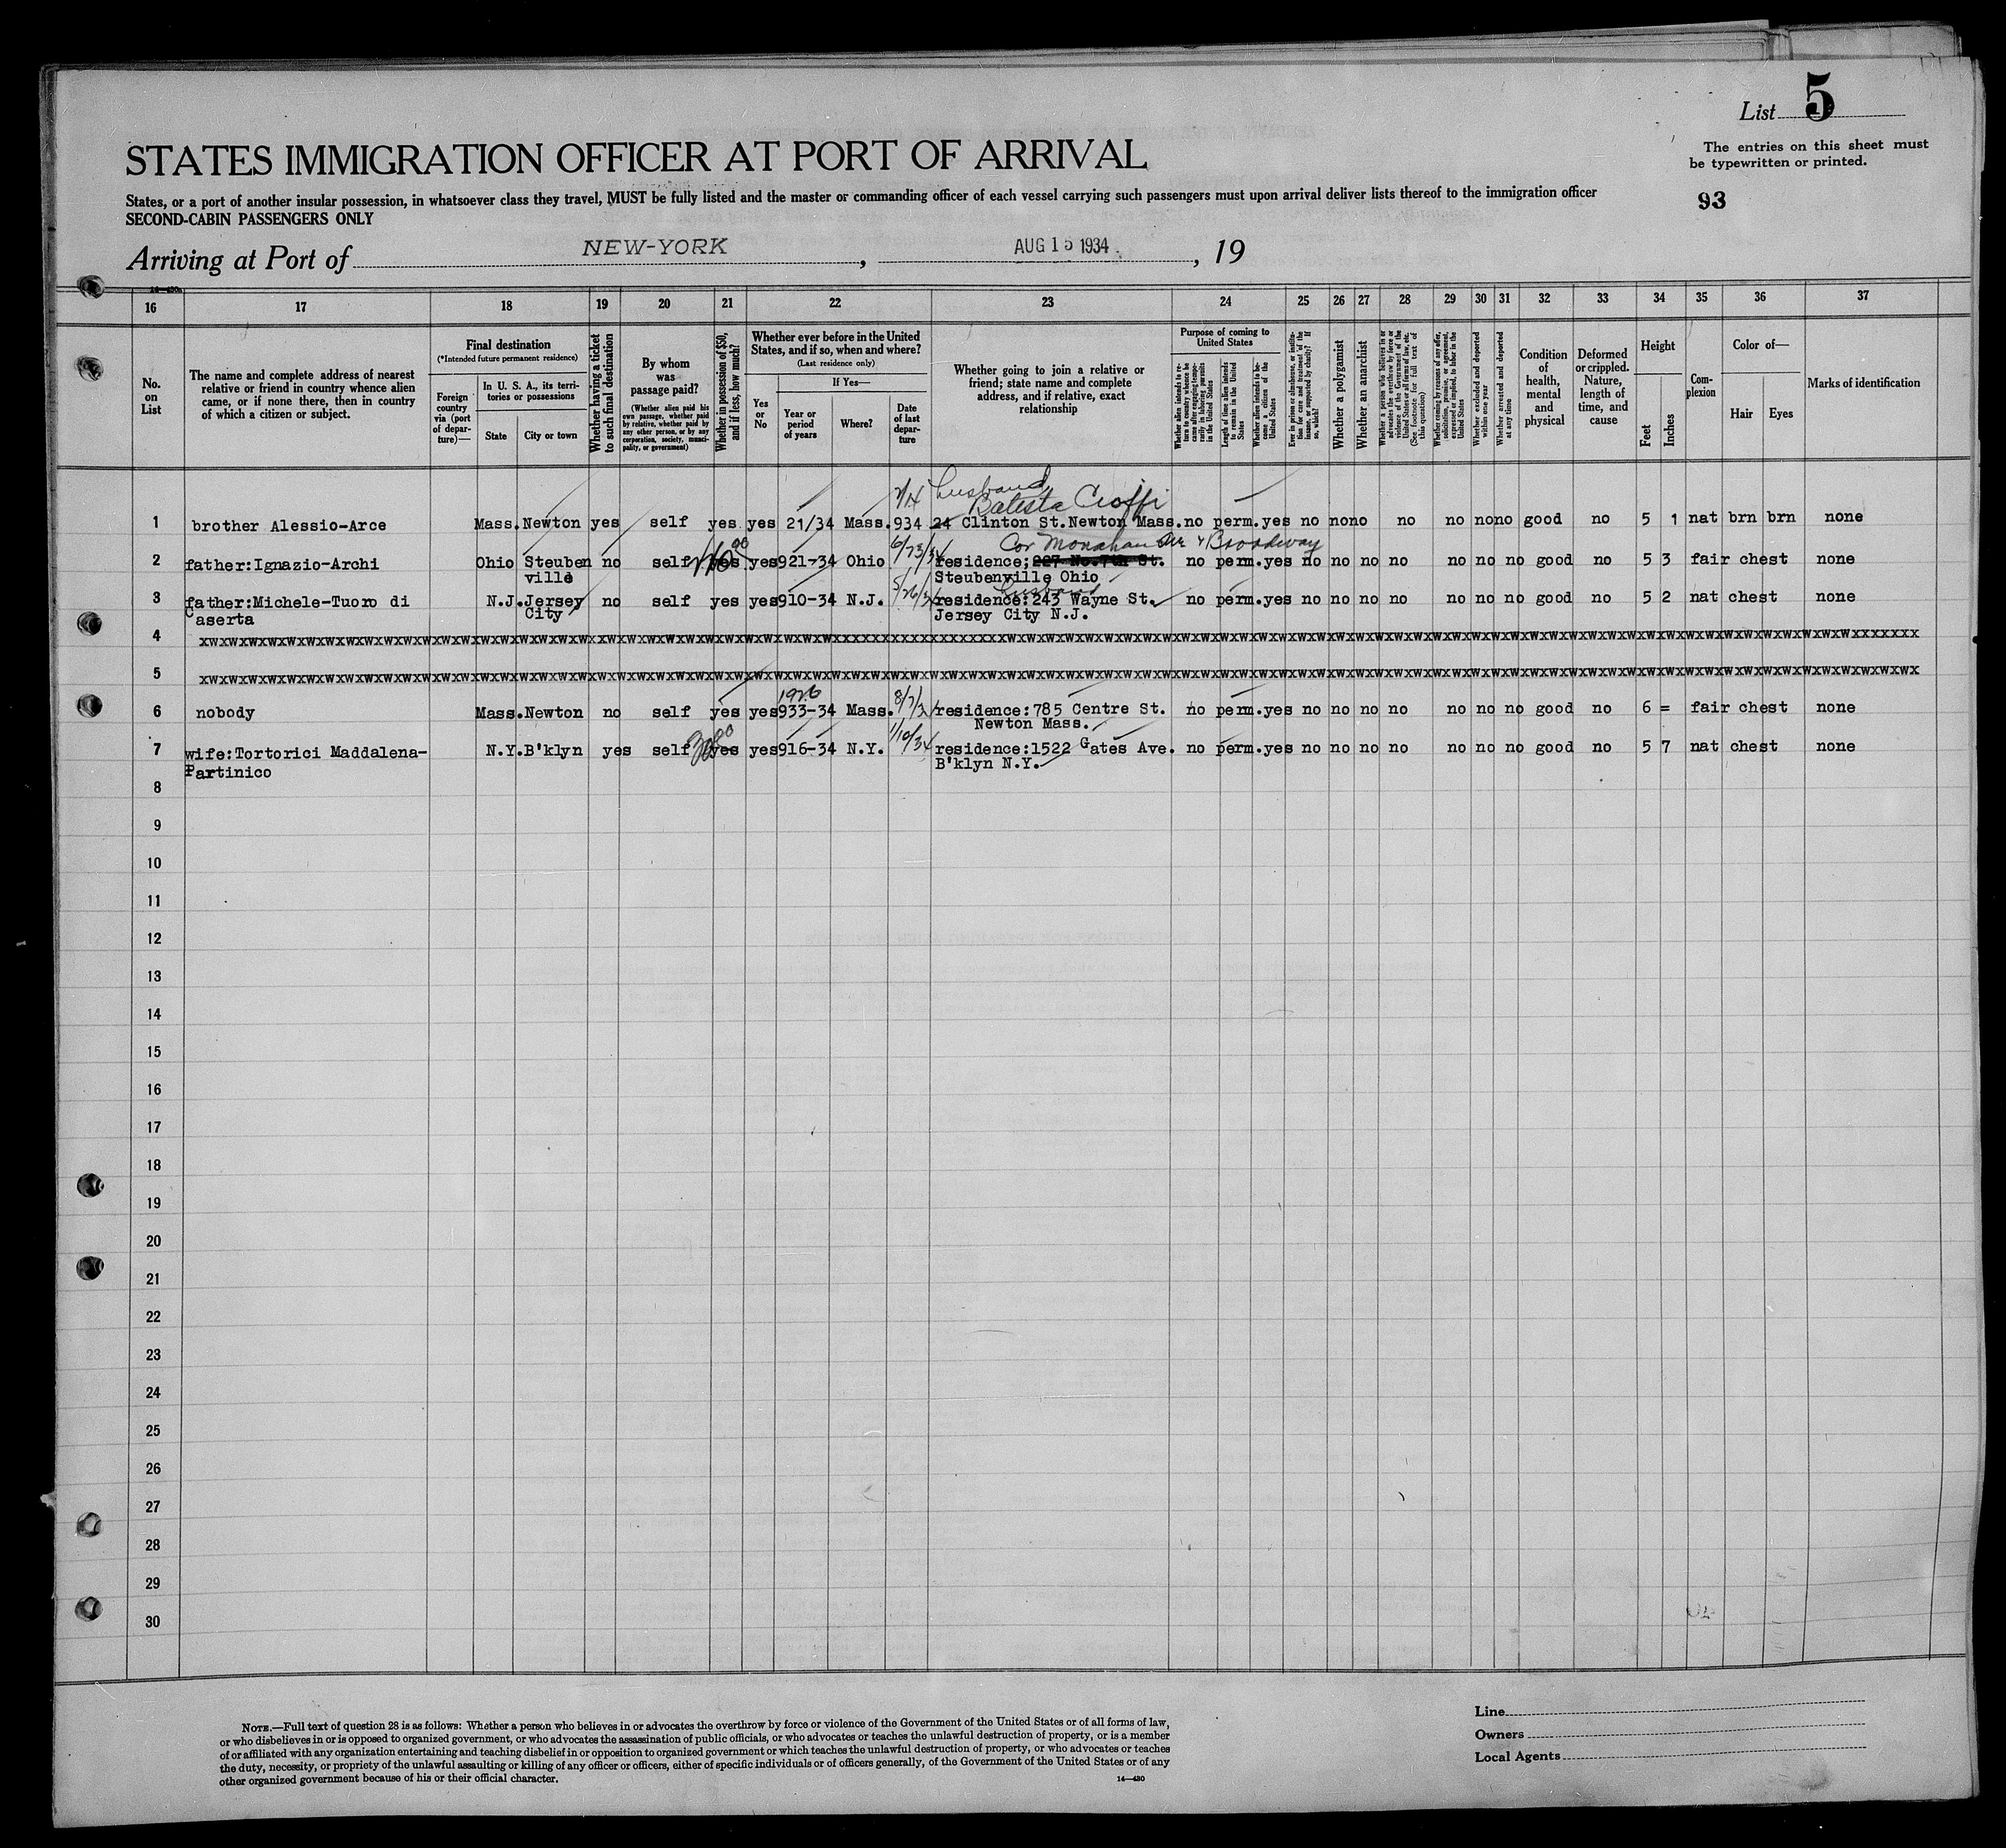 List 5
STATES IMMIGRATION OFFICER AT PORT OF ARRIVAL
The entries on this sheet must
be typewritten or printed.
States, or a port of another insular possession, in whatsoever class they travel, MUST be fully listed and the master or commanding officer of each vessel carrying such passengers must upon arrival deliver lists thereof to the immigration officer
SECOND-CABIN PASSENGERS ONLY
93
Arriving at Port of NEW-YORK, AUG 15 1934, 19
14—430a
16 17 18 19 20 21 22 23 24 25 26 27 28 29 30 31 32 33 34 35 36 37
No.
on
List
The name and complete address of nearest
relative or friend in country whence alien
came, or if none there, then in country
of which a citizen or subject.
Final destination
(*Intended future permanent residence)
Foreign
country
via (port
of depar-
ture)—
In U. S. A., its terri-
tories or possessions
State
City or town
Whether having a ticket
to such final destination
By whom
was
passage paid?
(Whether alien paid his
own passage, whether paid
by relative, whether paid by
any other person, or by any
corporation, society, munici-
pality, or government)
Whether in possession of $50,
and if less, how much?
Whether ever before in the United
States, and if so, when and where?
(Last residence only)
Yes
or
No
If Yes—
Year or
period
of years
Where?
Date
of last
depar-
ture
Whether going to join a relative or
friend; state name and complete
address, and if relative, exact
relationship
Purpose of coming to
United States
Whether alien intends to re-
turn to country whence he
came after engaging tempo-
rarily in laboring pursuits
in the United States
Length of time alien intends
to remain in the United
States
Whether alien intends to be-
come a citizen of the
United States
Ever in prison or almshouse, or institu-
tion for care and treatment of the
insane, or supported by charity? If
so, which?
Whether a polygamist
Whether an anarchist
Whether a person who believes in or
advocates the overthrow by force or
violence of the Government of the
United States or all forms of law, etc.
(See footnote for full text of
this question)
Whether coming by reasons of any offer,
solicitation, promise, or agreement,
expressed or implied, to labor in the
United States
Whether excluded and deported
within one year
Whether arrested and deported
at any time
Condition
of
health,
mental
and
physical
Deformed
or crippled.
Nature,
length of
time, and
cause
Height
Feet
Inches
Com-
plexion
Color of—
Hair
Eyes
Marks of identification
husband
Batista Cioffi
1 brother Alessio-Arce Mass. Newton yes self yes yes 21/34 Mass. 934 24 Clinton St. Newton Mass. no perm. yes no no no no no no no good no 5 1 nat brn brn none
Cor Monahan Ave & Broadway
2 father:Ignazio-Archi Ohio Steuben no self yes yes 921-34 Ohio residence; 227 No. 7th St. no perm. yes no no no no no no no good no 5 3 fair chest none
ville Steubenville Ohio
husband
3 father:Michele-Tuoro di N.J. Jersey no self yes yes 910-34 N.J. 5/26/34 residence: 243 Wayne St. no perm. yes no no no no no no no good no 5 2 nat chest none
Caserta City Jersey City N.J.
4 xwxwxwxwxwxwxwxwxwxwxwxwxwxwxwxwxwxwxwxwxwxwxwxwxwxwxwxwxwxwxwxw
5 xwxwxwxwxwxwxwxwxwxwxwxwxwxwxwxwxwxwxwxwxwxwxwxwxwxwxwxwxwxwxwxw
1926
6 nobody Mass. Newton no self yes yes 933-34 Mass. 8/7/34 residence: 785 Centre St. no perm. yes no no no no no no no good no 6 = fair chest none
Newton Mass.
7 wife:Tortorici Maddalena- N.Y. B'klyn yes self yes yes 916-34 N.Y. 1/10/34 residence:1522 Gates Ave. no perm. yes no no no no no no no good no 5 7 nat chest none
Partinico B'klyn N.Y.
8
9
10
11
12
13
14
15
16
17
18
19
20
21
22
23
24
25
26
27
28
29
30
NOTE.—Full text of question 28 is as follows: Whether a person who believes in or advocates the overthrow by force or violence of the Government of the United States or of all forms of law,
or who disbelieves in or is opposed to organized government, or who advocates the assassination of public officials, or who advocates or teaches the unlawful destruction of property, or is a member
of or affiliated with any organization entertaining and teaching disbelief in or opposition to organized government or which teaches the unlawful destruction of property, or who advocates or teaches
the duty, necessity, or propriety of the unlawful assaulting or killing of any officer or officers, either of specific individuals or of officers generally, of the Government of the United States or of any
other organized government because of his or their official character.
14—430
Line
Owners
Local Agents